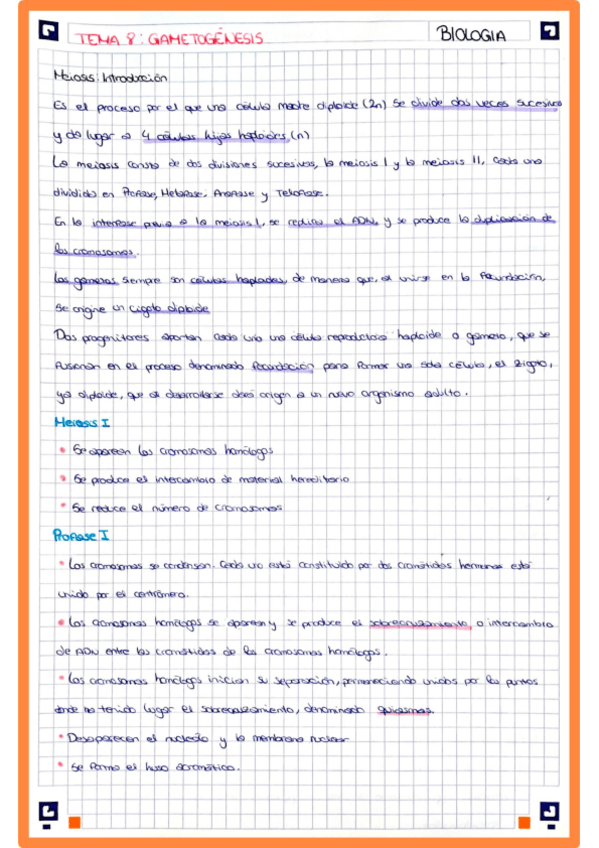 TEMA 8: GAMETOGÉNESIS
BIOLOGIA
Meiosis: Introducción
Es el proceso por el que una célula madre diploide (2n) se divide dos veces sucesivas
y da lugar a 4 células hijas haploides (n)
La meiosis consta de dos divisiones sucesivas, la meiosis I y la meiosis II, cada una
dividida en Profase, Metafase, Anafase y Telofase.
En la interfase previa a la meiosis I, se replica el ADN, y se produce la duplicación de
los cromosomas.
Los gametos siempre son células haploides, de manera que, al unirse en la fecundación,
se origine un cigoto diploide
Dos progenitores aportan cada uno una célula reproductora haploide o gameto, que se
fusionan en el proceso denominado fecundación para formar una sola célula, el zigoto,
ya diploide, que al desarrollarse dará origen a un nuevo organismo adulto.
Meiosis I
• Se aparean los cromosomas homólogos
• Se produce el intercambio de material hereditario
• Se reduce el número de cromosomas
Profase I
• Los cromosomas se condensan. Cada uno está constituido por dos cromátidas hermanas está
unido por el centrómero.
• Los cromosomas homólogos se aparean y se produce el sobrecruzamiento o intercambio
de ADN entre las cromátidas de los cromosomas homólogos.
• Los cromosomas homólogos inician su separación, permaneciendo unidos por los puntos
donde ha tenido lugar el sobrecruzamiento, denominado quiasmas.
• Desaparecen el nucleolo y la membrana nuclear
• Se forma el huso acromático.